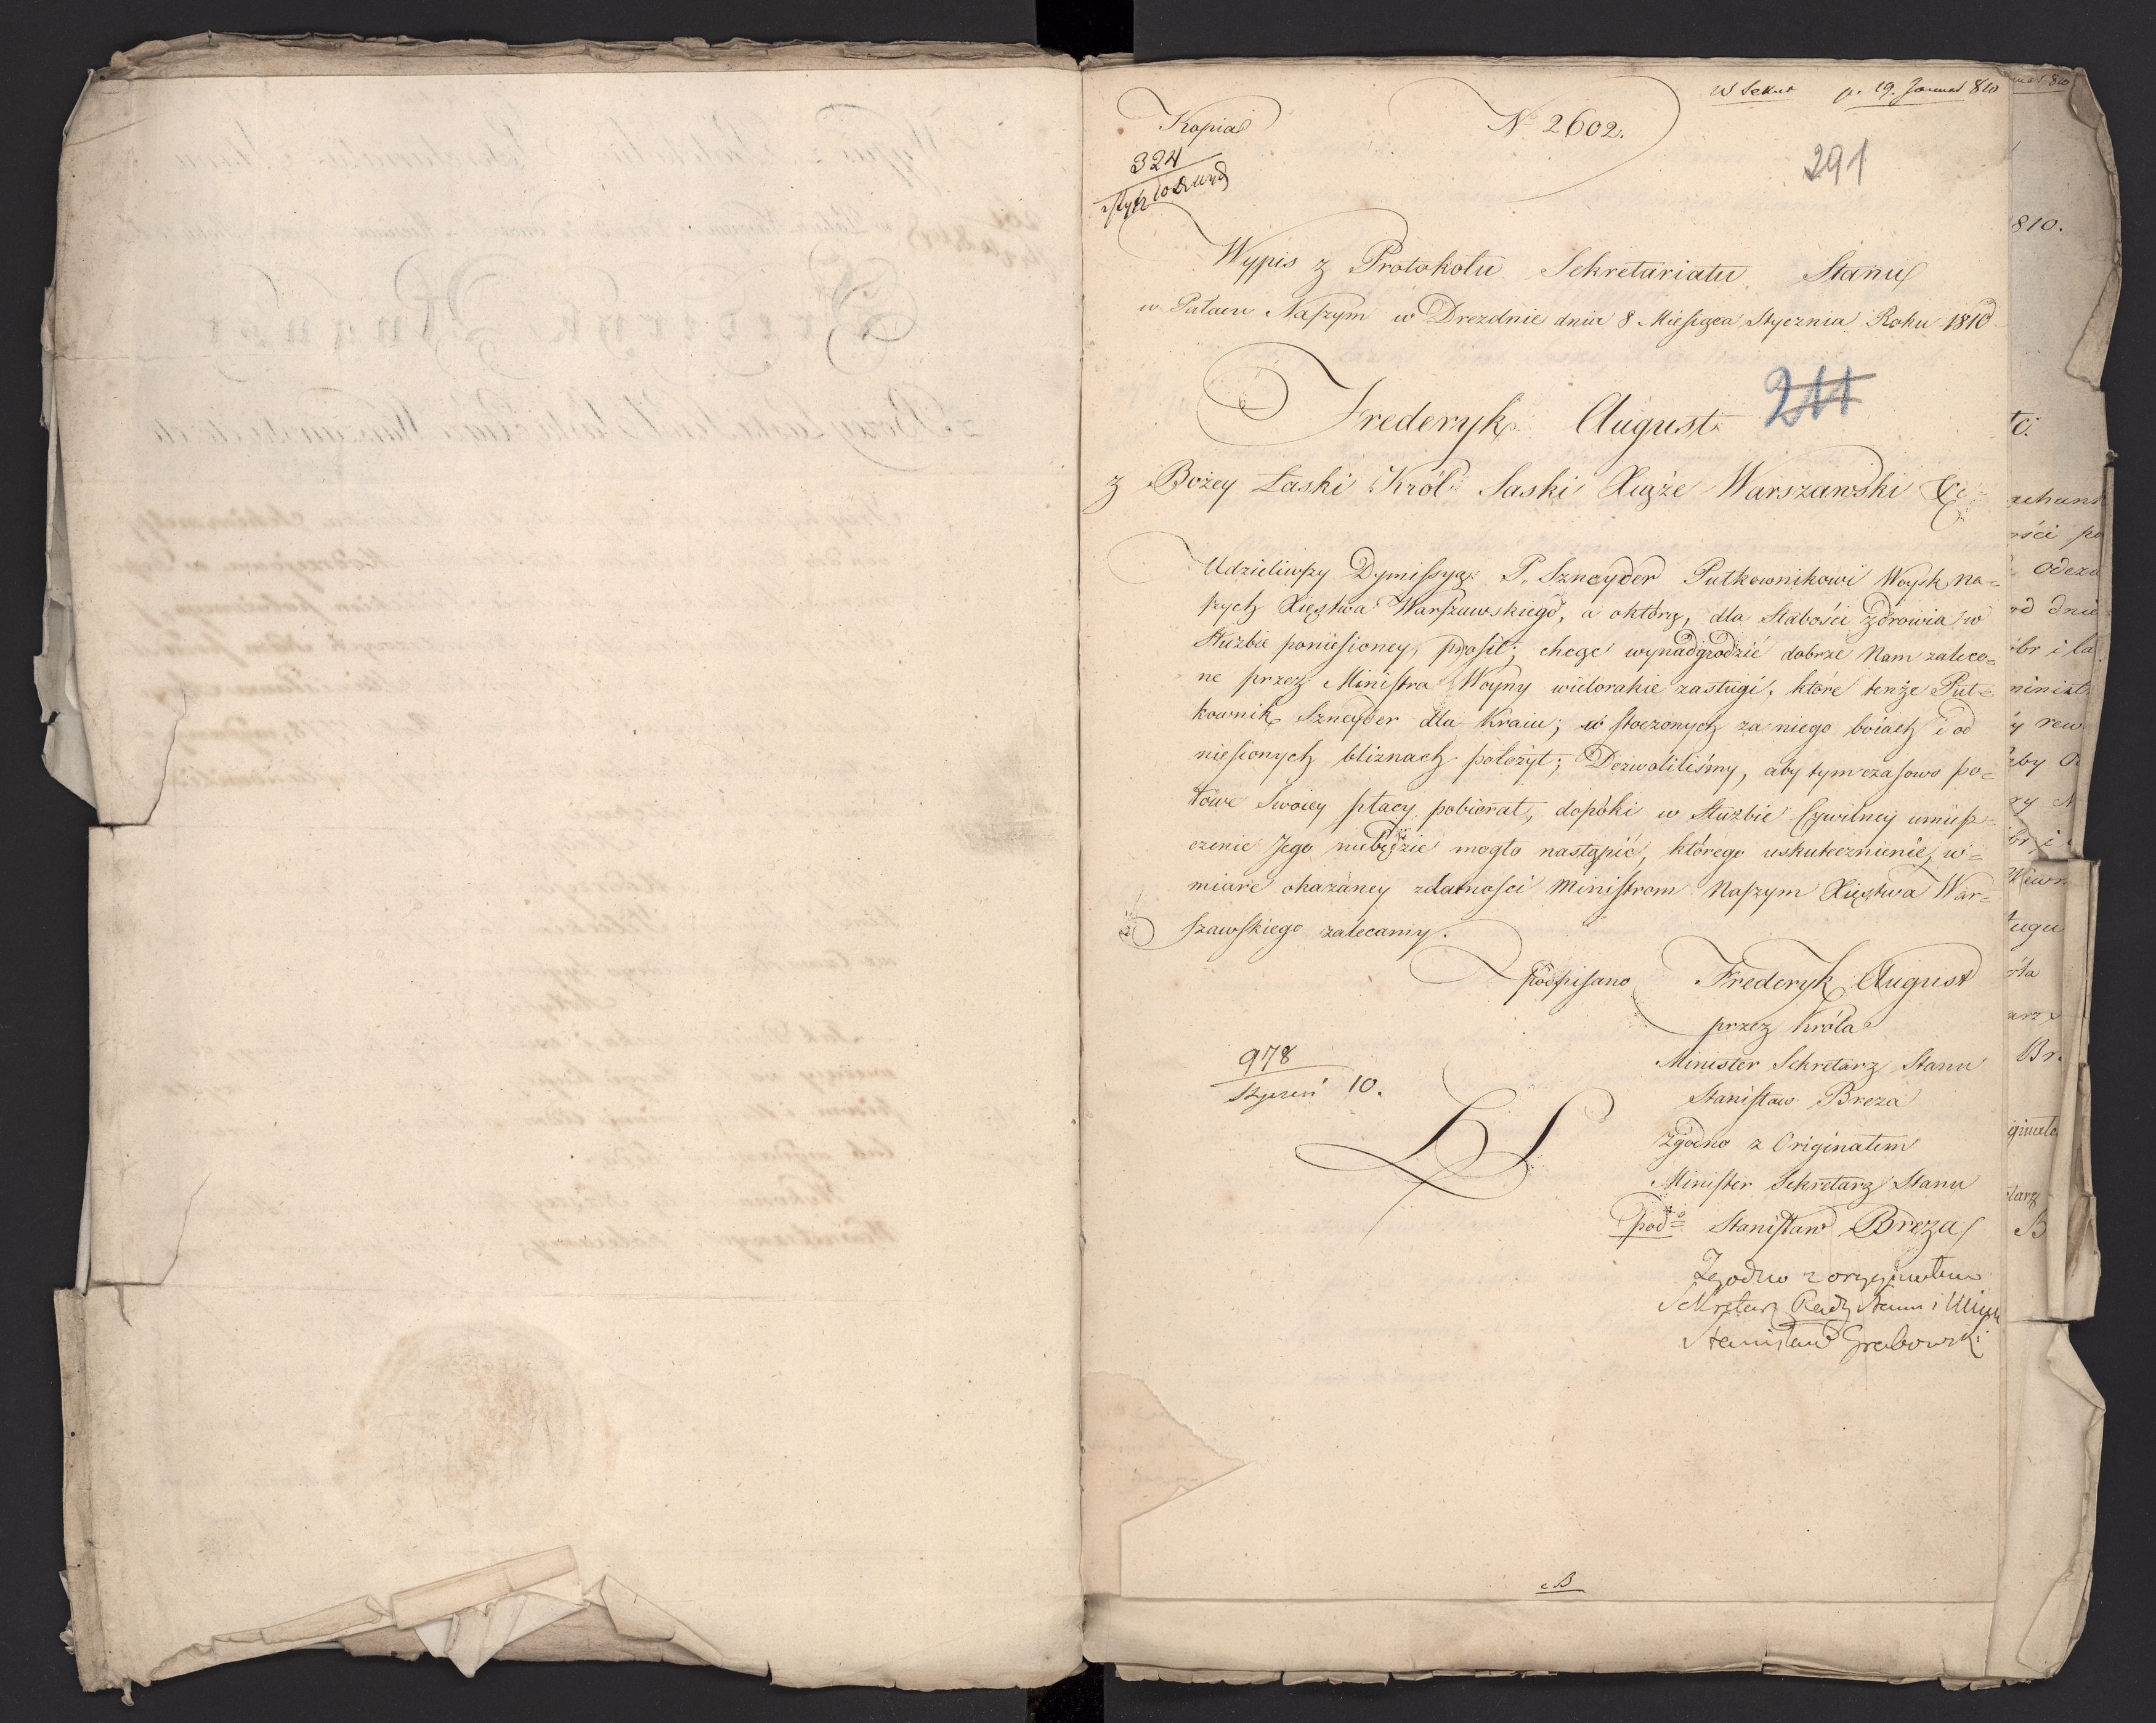 W Sekret p. 19. Januar 810
Kopia
No 2602.
324
291
Wypis z Protokołu Sekretariatu Stanu
w Pałacu Naszym w Dreznie dnia 8 Miesiąca Stycznia Roku 1810
Frederyk August
211
z Bożey Łaski Król Saski Xiąże Warszawski &c
Udzieliwszy Dymissyą P. Szneyder Pułkownikowi Woysk Na=
szych Xięstwa Warszawskiego, a o którą, dla Słabości zdrowia w
Służbie poniesioney, prosił; chcąc wynadgrodzić dobrze Nam zaleco=
ne przez Ministra Woyny wielorakie zasługi, które tenże Puł=
kownik Szneyder dla Kraiu; w stoczonych za niego boiach i od
niesionych bliznach położył; Dozwoliliśmy, aby tymczasowo po=
łowę Swoiey płacy pobierał, dopóki w Służbie Cywilney umiesz=
czenie Jego niebędzie mogło nastąpić, którego uskutecznienie, w=
miarę okazaney zdatności Ministrom Naszym Xięstwa War=
szawskiego zalecamy.
podpisano Frederyk August
przez Króla
Minister Sekretarz Stanu
Stanisław Breza
978
Styczeń 10.
LS
Zgodno z Originałem
Minister Sekretarz Stanu
pod= Stanisław Breza
Zgodno z oryginałem
Sekretarz Rady Stanu i Min
Stanisław Grabowski